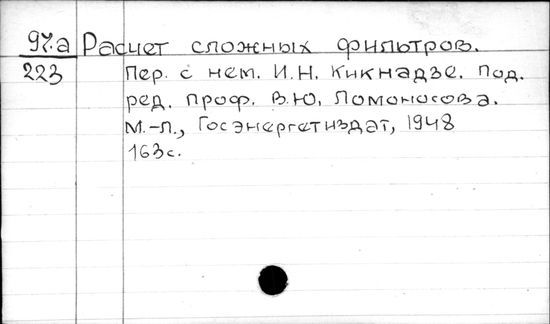 97.а Расчет сложных фильтров.
223 Пер. с нем. И.Н. Кикнадзе. Под.
ред. проф. В.Ю. Ломоносова.
М.-Л., Госэнергетиздат, 1948
163с.